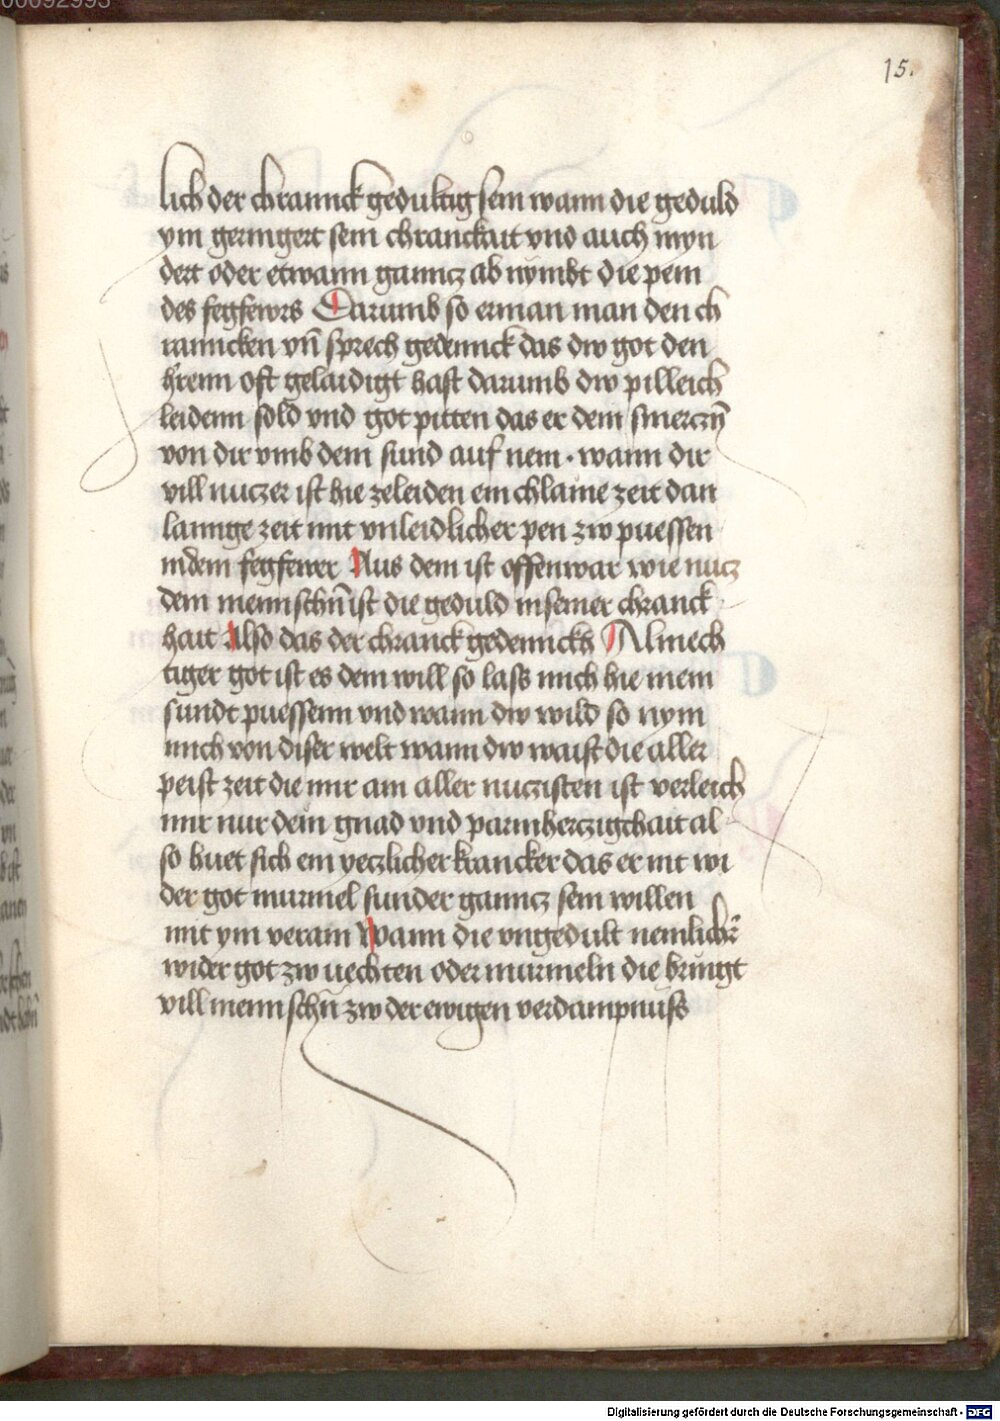 15.
lich der chrannck gedultig sein wann die geduld
ym geringert sein chranckait vnd auch myn
dert oder etwann ganncz ab nymbt die pein
des fegfewrs Darumb so erman man den ch
ranncken vn̄ sprech gedennck das dw got den
h'renn oft gelaidigt hast darumb dw pilleich
leidenn sold vnd got pitten das er dein smerczn̄
von dir vmb dein sund auf nem · wann dir
vill nuczer ist hie zeleiden ein chlaine zeit dan
lannge zeit mit vnleidlicher pen zw puessen
indem fegfewer Aus dem ist offenwar wie nucz
dem mennschn̄ ist die geduld inseiner chranck
hait Also das der chranck gedennckh Almech
tiger got ist es dein will so lass mich hie mein
sundt puessenn vnd wann dw wild so nym
mich von diser welt wann dw waist die aller
peist zeit die mir am aller nuczisten ist verleich
mir nur dein gnad vnd parmherczigchait al
so huet sich ein yeczlicher krancker das er nit wi
der got murmel sunder ganncz sein willen
mit ym verain Wann die vngedult nemlichn̄
wider got zw uechten oder murmeln die bringt
vill mennschn̄ zw der ewigen verdampnuss
Digitalisierung gefördert durch die Deutsche Forschungsgemeinschaft - DFG